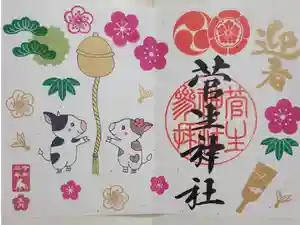 迎春
菅生神社
菅生
神社
参拝